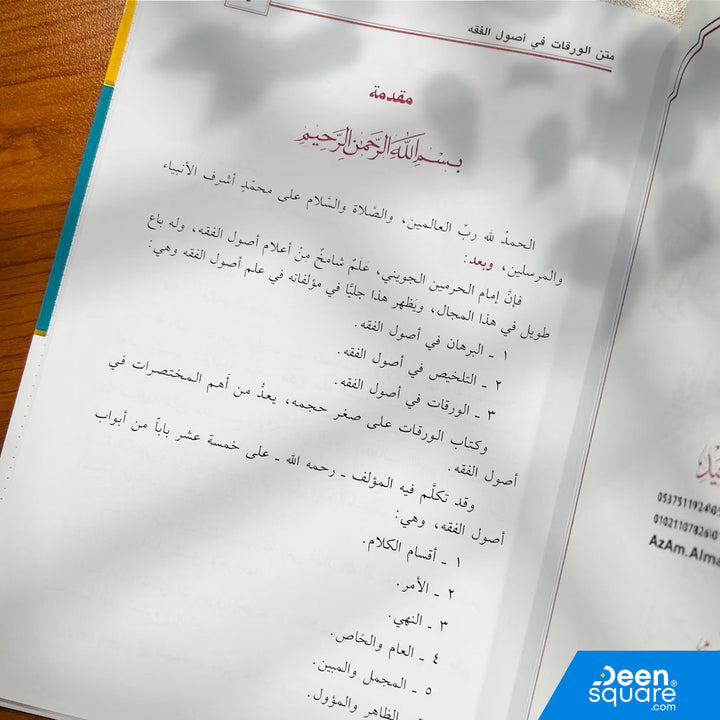 متن الورقات في أصول الفقه
مقدمة
بسم الله الرحمن الرحيم
الحمدُ لله ربِّ العالمين، والصَّلاة والسَّلام على محمّدٍ أشرف الأنبياء
والمرسلين، وبعد:
فإنَّ إمام الحرمين الجويني، عَلَمٌ شامخٌ مِنْ أعلام أصول الفقه، وله باع
طويل في هذا المجال، ويَظهر هذا جليًّا في مؤلفاته في علم أصول الفقه وهي:
١ ـ البرهان في أصول الفقه.
٢ ـ التلخيص في أصول الفقه.
٣ ـ الورقات في أصول الفقه.
وكتاب الورقات على صغر حجمه، يعدُّ من أهم المختصرات في
أصول الفقه.
وقد تكلَّم فيه المؤلف ـ رحمه الله ـ على خمسة عشر باباً من أبواب
أصول الفقه، وهي:
١ ـ أقسام الكلام.
٢ ـ الأمر.
٣ ـ النهي.
٤ ـ العام والخاص.
٥ ـ المجمل والمبين.
ـ الظاهر والمؤول.
0537511924
01021107826
AzAm.Alma
Deen
square®
.com